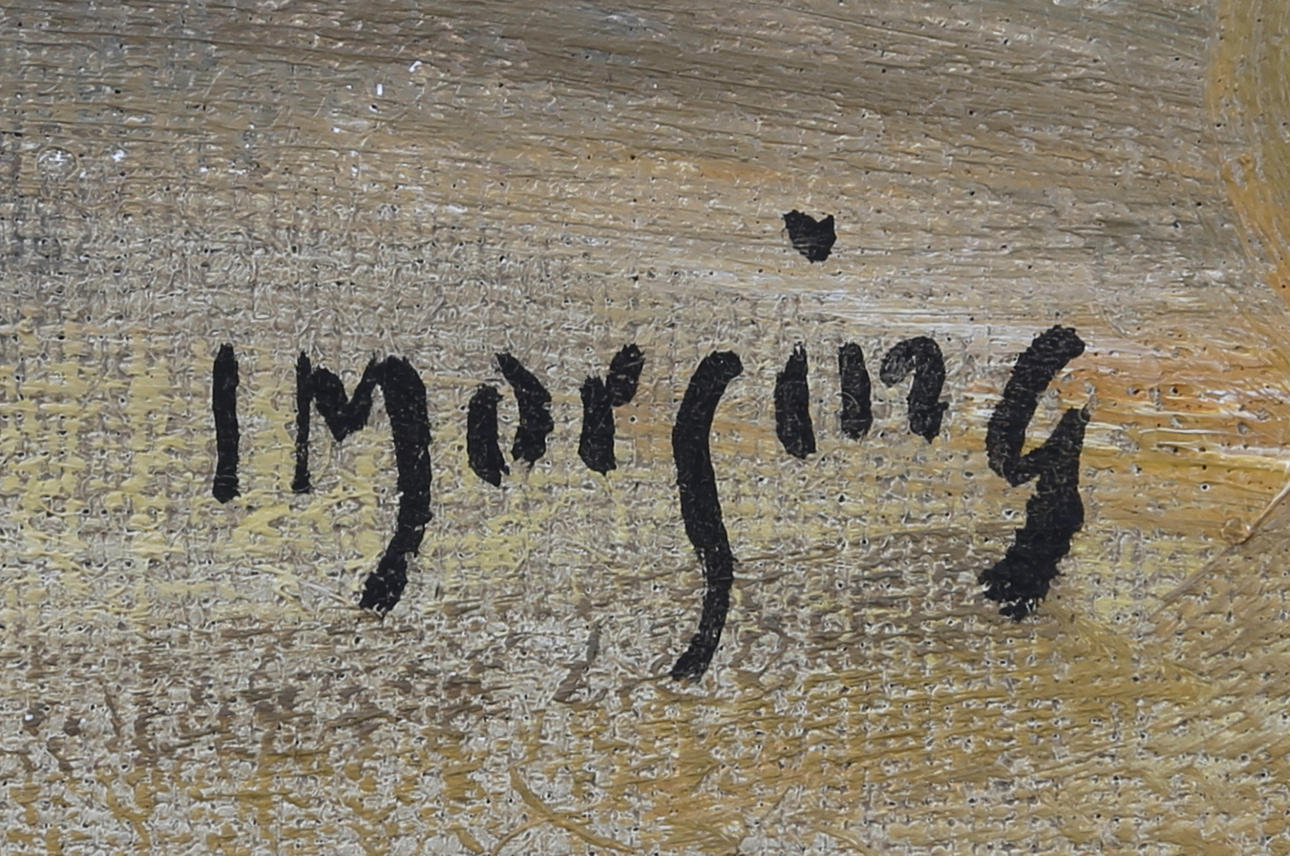 I Morsing